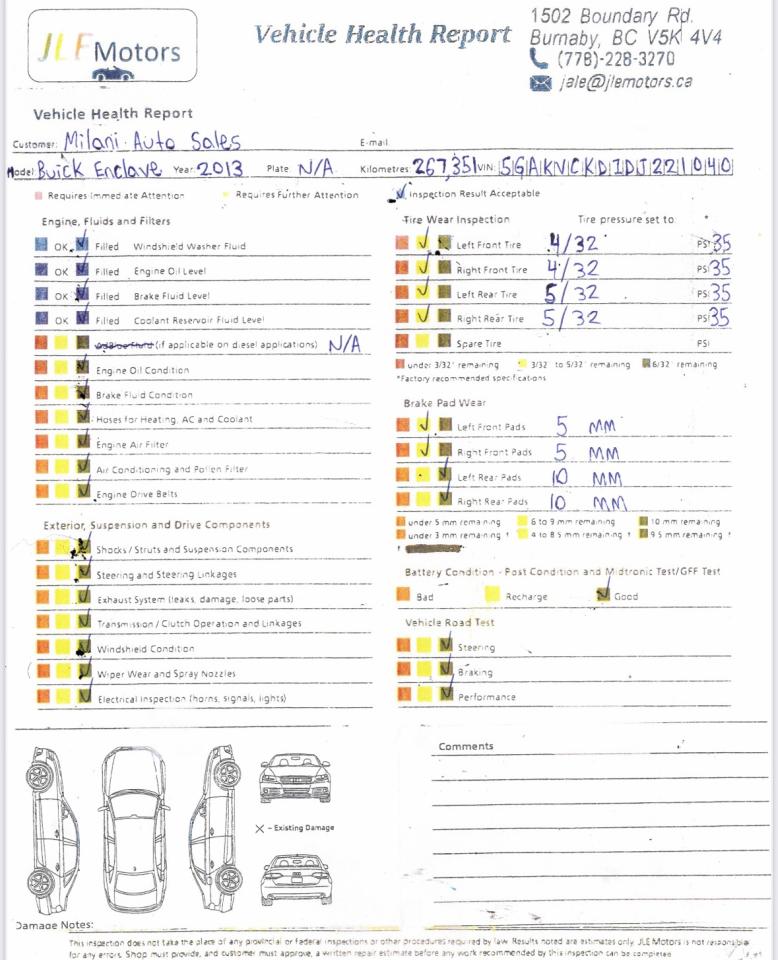 JLE Motors
Vehicle Health Report
1502 Boundary Rd.
Burnaby, BC V5K 4V4
(778)-228-3270
jale@jlemotors.ca
Vehicle Health Report
Customer: Milani Auto Sales E-mail
Model: Buick Enclave Year: 2013 Plate: N/A Kilometres: 267,351 VIN: 5GAKVCKD1DJ221040
Requires Immediate Attention Requires Further Attention Inspection Result Acceptable
Engine, Fluids and Filters
OK Filled Windshield Washer Fluid
OK Filled Engine Oil Level
OK Filled Brake Fluid Level
OK Filled Coolant Reservoir Fluid Level
(if applicable on diesel applications) N/A
Engine Oil Condition
Brake Fluid Condition
Hoses for Heating, AC and Coolant
Engine Air Filter
Air Conditioning and Pollen Filter
Engine Drive Belts
Exterior, Suspension and Drive Components
Shocks / Struts and Suspension Components
Steering and Steering Linkages
Exhaust System (leaks, damage, loose parts)
Transmission / Clutch Operation and Linkages
Windshield Condition
Wiper Wear and Spray Nozzles
Electrical Inspection (horns, signals, lights)
Tire Wear Inspection Tire pressure set to: *
Left Front Tire 4/32 PSI 35
Right Front Tire 4/32 PSI 35
Left Rear Tire 5/32 PSI 35
Right Rear Tire 5/32 PSI 35
Spare Tire PSI
under 3/32' remaining 3/32 to 5/32' remaining 6/32' remaining
*Factory recommended specifications
Brake Pad Wear
Left Front Pads 5 MM
Right Front Pads 5 MM
Left Rear Pads 10 MM
Right Rear Pads 10 MM
under 5 mm remaining 6 to 9 mm remaining 10 mm remaining
under 3 mm remaining † 4 to 8.5 mm remaining † 9.5 mm remaining †
†
Battery Condition - Post Condition and Midtronic Test/GFF Test
Bad Recharge Good
Vehicle Road Test
Steering
Braking
Performance
X - Existing Damage
Comments
Damage Notes:
This inspection does not take the place of any provincial or federal inspections or other procedures required by law. Results noted are estimates only. JLE Motors is not responsible
for any errors. Shop must provide, and customer must approve, a written repair estimate before any work recommended by this inspection can be completed